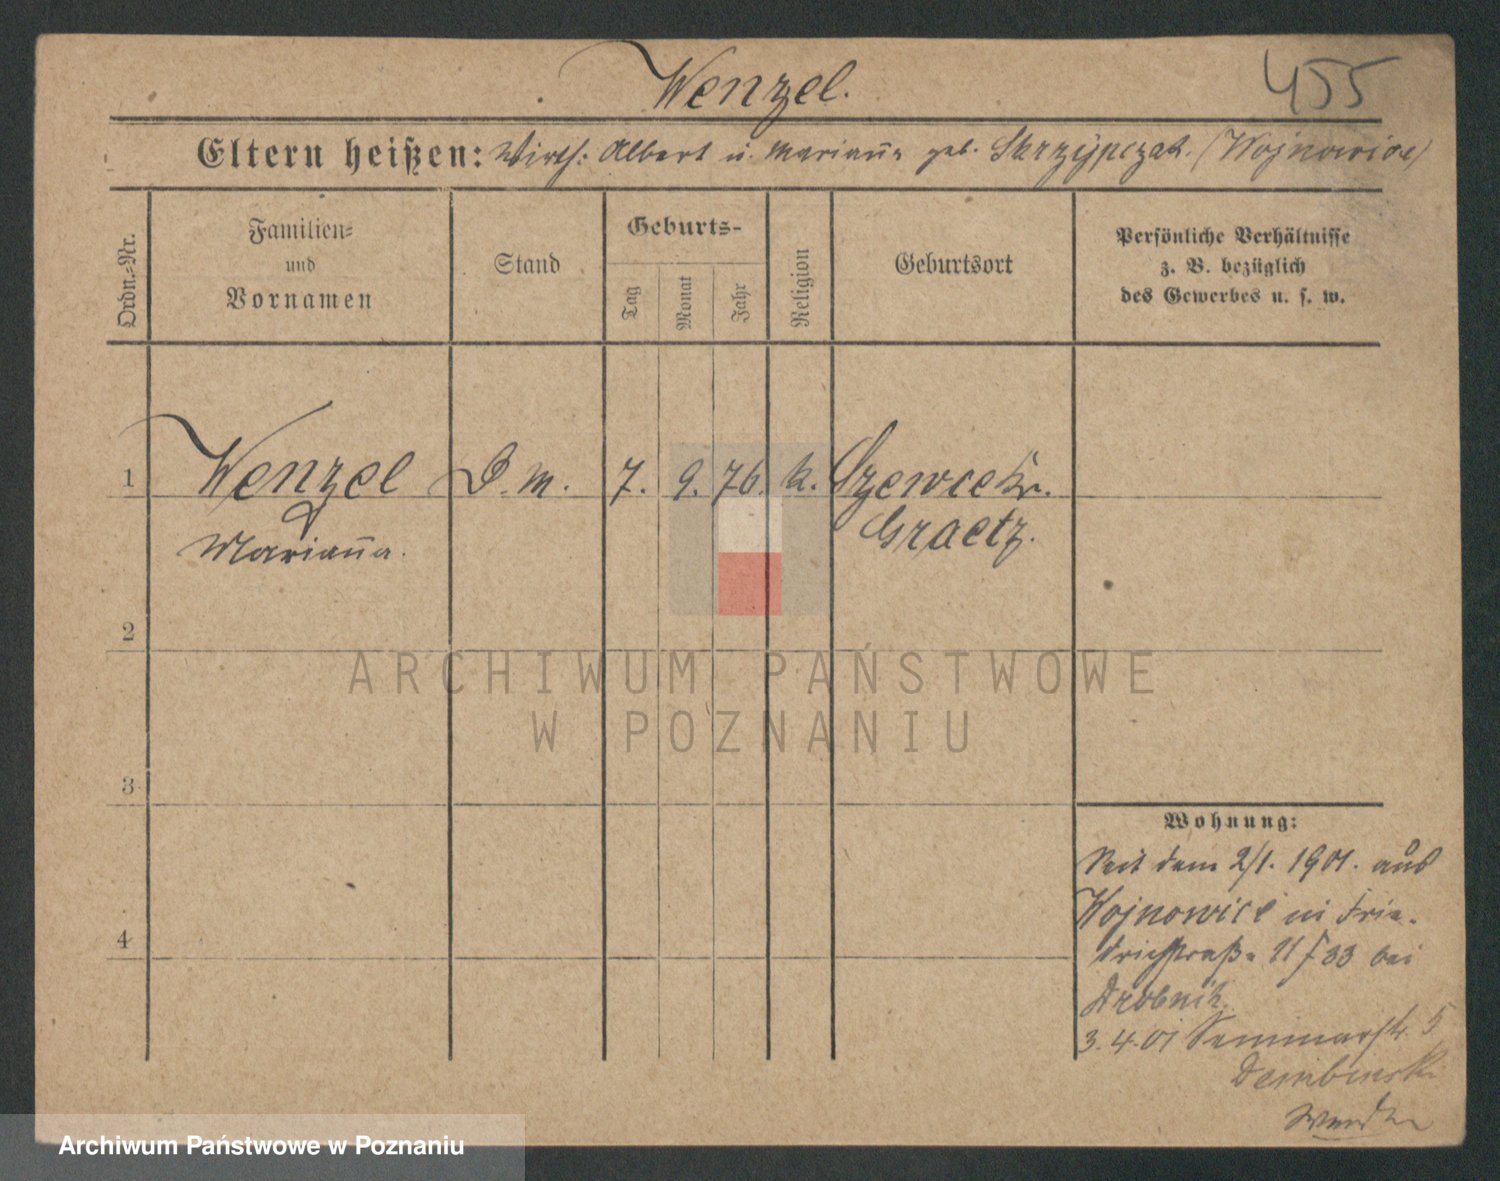 Wenzel.
455
Eltern heißen: Wirth: Albert u. Mariañe geb. Skrzypczak. (Wojnowice)
Ordn.=Nr.
Familien=
und
Vornamen
Stand
Geburts-
Tag
Monat
Jahr
Religion
Geburtsort
Persönliche Verhältnisse
z. B. bezüglich
des Gewerbes u. s. w.
1 Wenzel D. m. 7. 9. 76. k. Szewce Kr.
Mariaña. Graetz.
2
3
4
Wohnung:
Seit dem 2/1. 1901. aus
Wojnowice in Frie-
drichstraße 11/33 bei
Drobnik.
3. 4. 01 Seminarstr. 5
Dembinski
ARCHIWUM PAŃSTWOWE
W POZNANIU
Archiwum Państwowe w Poznaniu